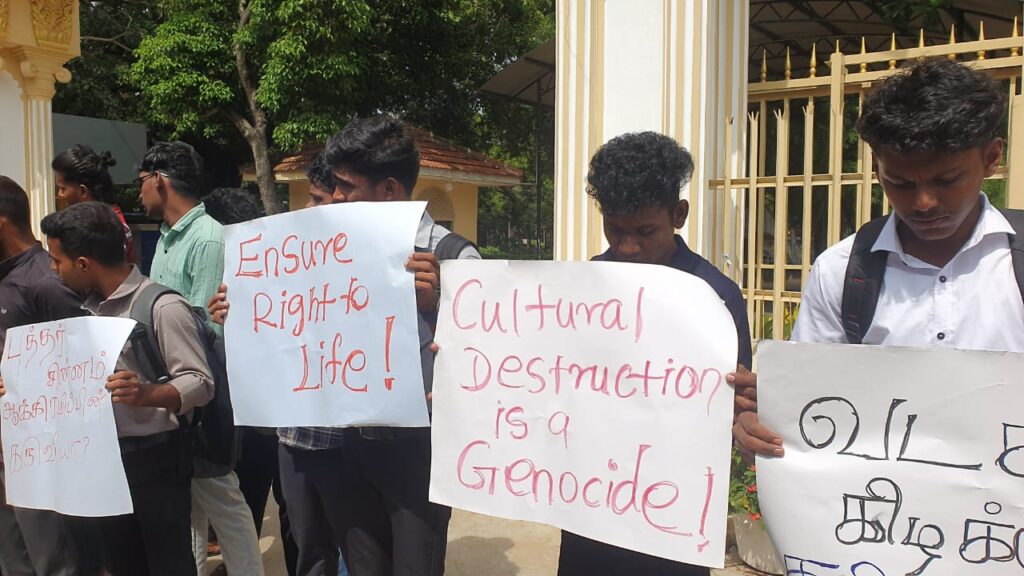 புத்தர்
சின்னம்
ஆக்கிரமிப்பின்
Ensure
Right to
Life!
Cultural
Destruction
is a
Genocide!
வட
கிழக்